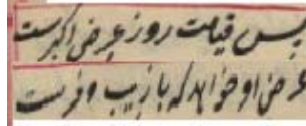 پس قیامت روز عرض اکبرست
عرض او خواهد که با زیب و فرست